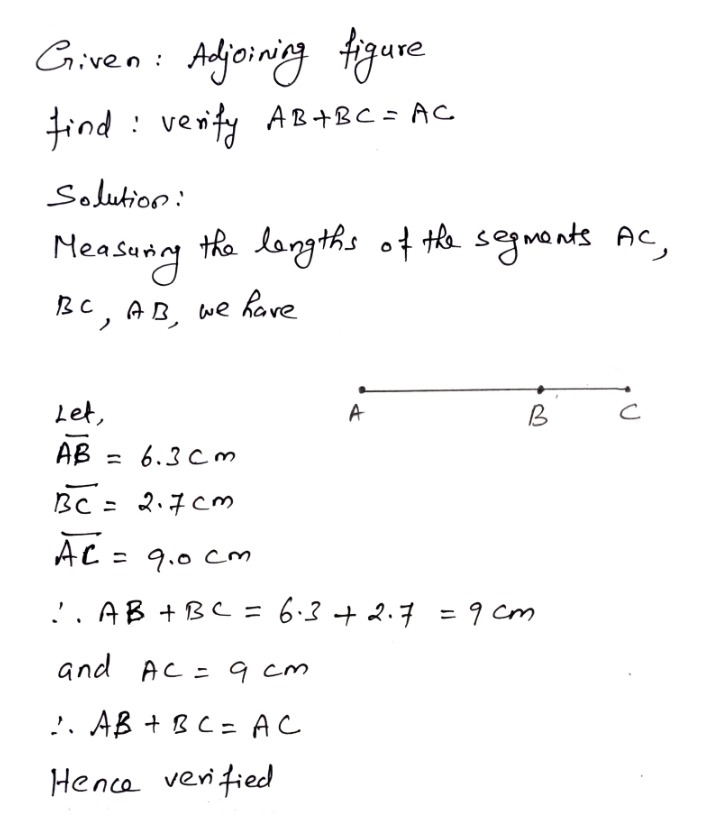 Given : Adjoining figure
find : verify AB+BC = AC
Solution:
Measuring the lengths of the segments AC,
BC, AB, we have
A B C
Let,
AB = 6.3 cm
BC = 2.7 cm
AC = 9.0 cm
∴ AB + BC = 6.3 + 2.7 = 9 cm
and AC = 9 cm
∴ AB + BC = AC
Hence verified